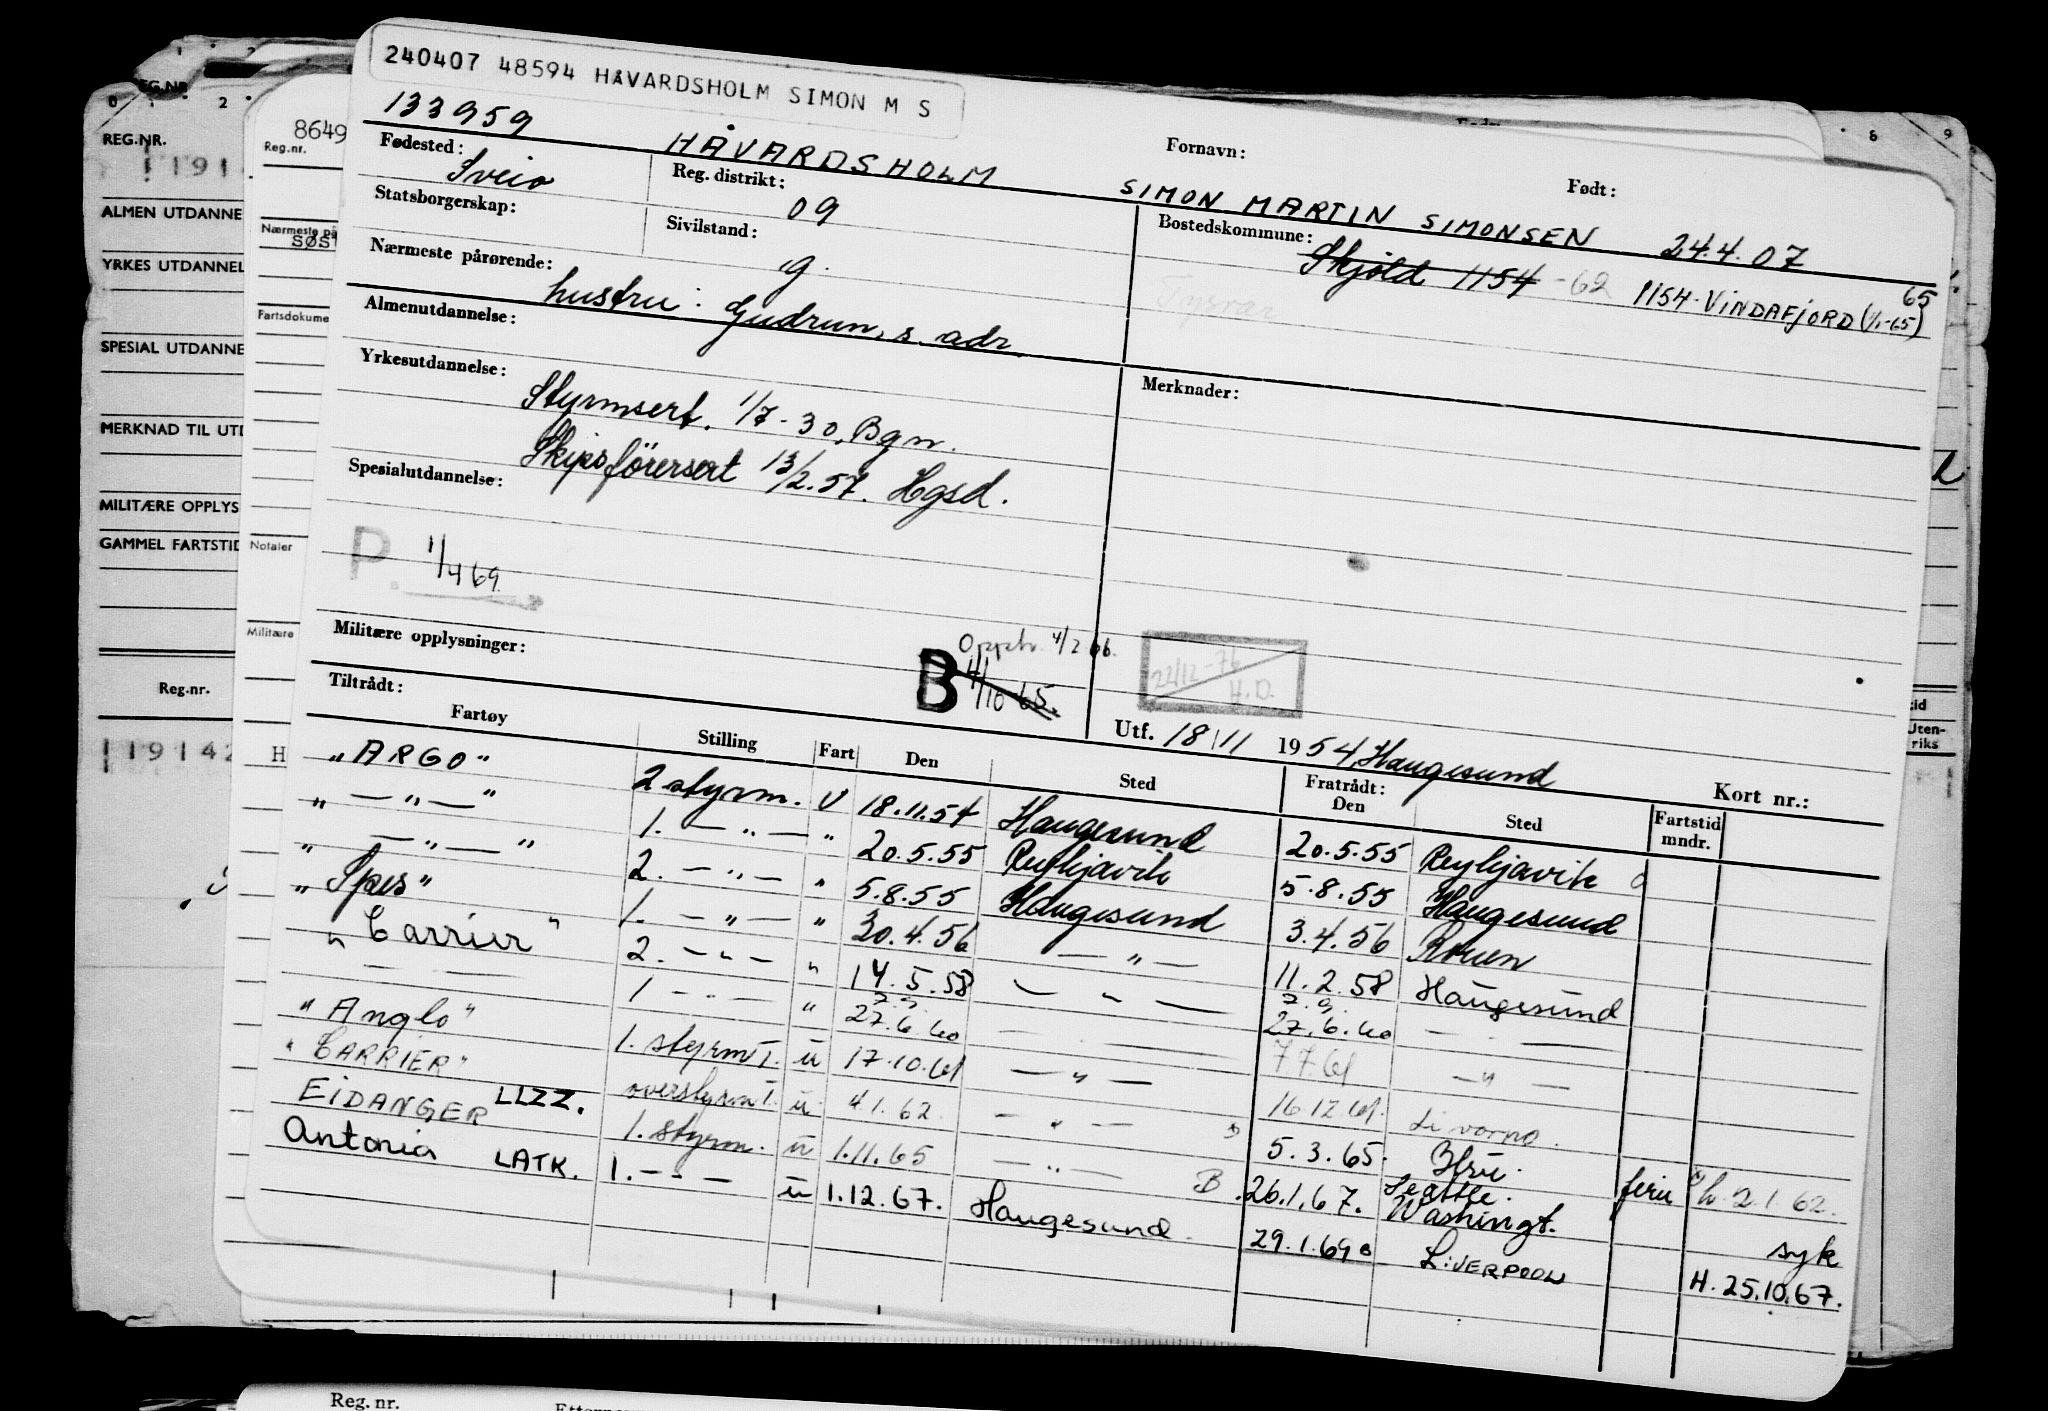 240407 48594 HAVARDSHOLM SIMON M S
133959 HÅVARDSHOLM SIMON MARTIN SIMONSEN 24.4.07
Fornavn: Født:
Fødested: Sveio Reg. distrikt: 09 Bostedskommune: Skjold 1154 -62 1154-VINDAFJORD (1/1-65) 65
Tysvær
Statsborgerskap: Sivilstand: g.
Nærmeste pårørende: hustru: Gudrun, s. adr.
Almenutdannelse: Merknader:
Yrkesutdannelse: Styrmsert. 1/7-30. Bgn.
Skipsförersert 13/2.57. Hgsd.
Spesialutdannelse:
P. 1/4 69.
Militære opplysninger: B 11/10 65. Opph. 4/2 66.
22/12-76 H.D.
Tiltrådt: Utf. 18/11 1954, Haugesund Kort nr.:
Fartøy Stilling Fart Den Sted Fratrådt: Den Sted Fartstid mndr.
"ARGO" 2 styrm. U 18.11.54 Haugesund 20.5.55 Reykjavik
" — " — " 1. — " — " 20.5.55 Reykjavik 5.8.55 Haugesund
" — " — " 2. — " — " 5.8.55 Haugesund 3.4.56 Rouen
"Spes" 1. — " — " 30.4.56 — " — 11.2.58 Haugesund
"Carrier" 2. — " — " 14.5.58 — " — 27.6.60 — " —
— — 1 — " — " 27.6.60 — — 7.7.61 — " —
"Anglo" 1. styrm I. u 17.10.61 — " — 16.12.61. Livorno.
"CARRIER" overstyrm I. u 4.1.62. — " — 5.3.65. ferie h. 2.1.62.
EIDANGER LLZZ. 1. styrm. u 1.11.65 — " — B 26.1.67. Seattle. Washingt. syk
H. 25.10.67.
Antonia LATK. 1. - - - u 1.12.67. Haugesund. 29.1.69 B LIVERPOOL
REG.NR.
ALMEN UTDANNE
YRKES UTDANNEL
SPESIAL UTDANNE
MERKNAD TIL UTD
MILITÆRE OPPLYS
GAMMEL FARTSTID
Reg.nr.
19142
8649
Reg.nr.
Nærmeste på
SØST
Fartsdokume
Notater
Militære
H
Uten-
riks
Reg. nr.